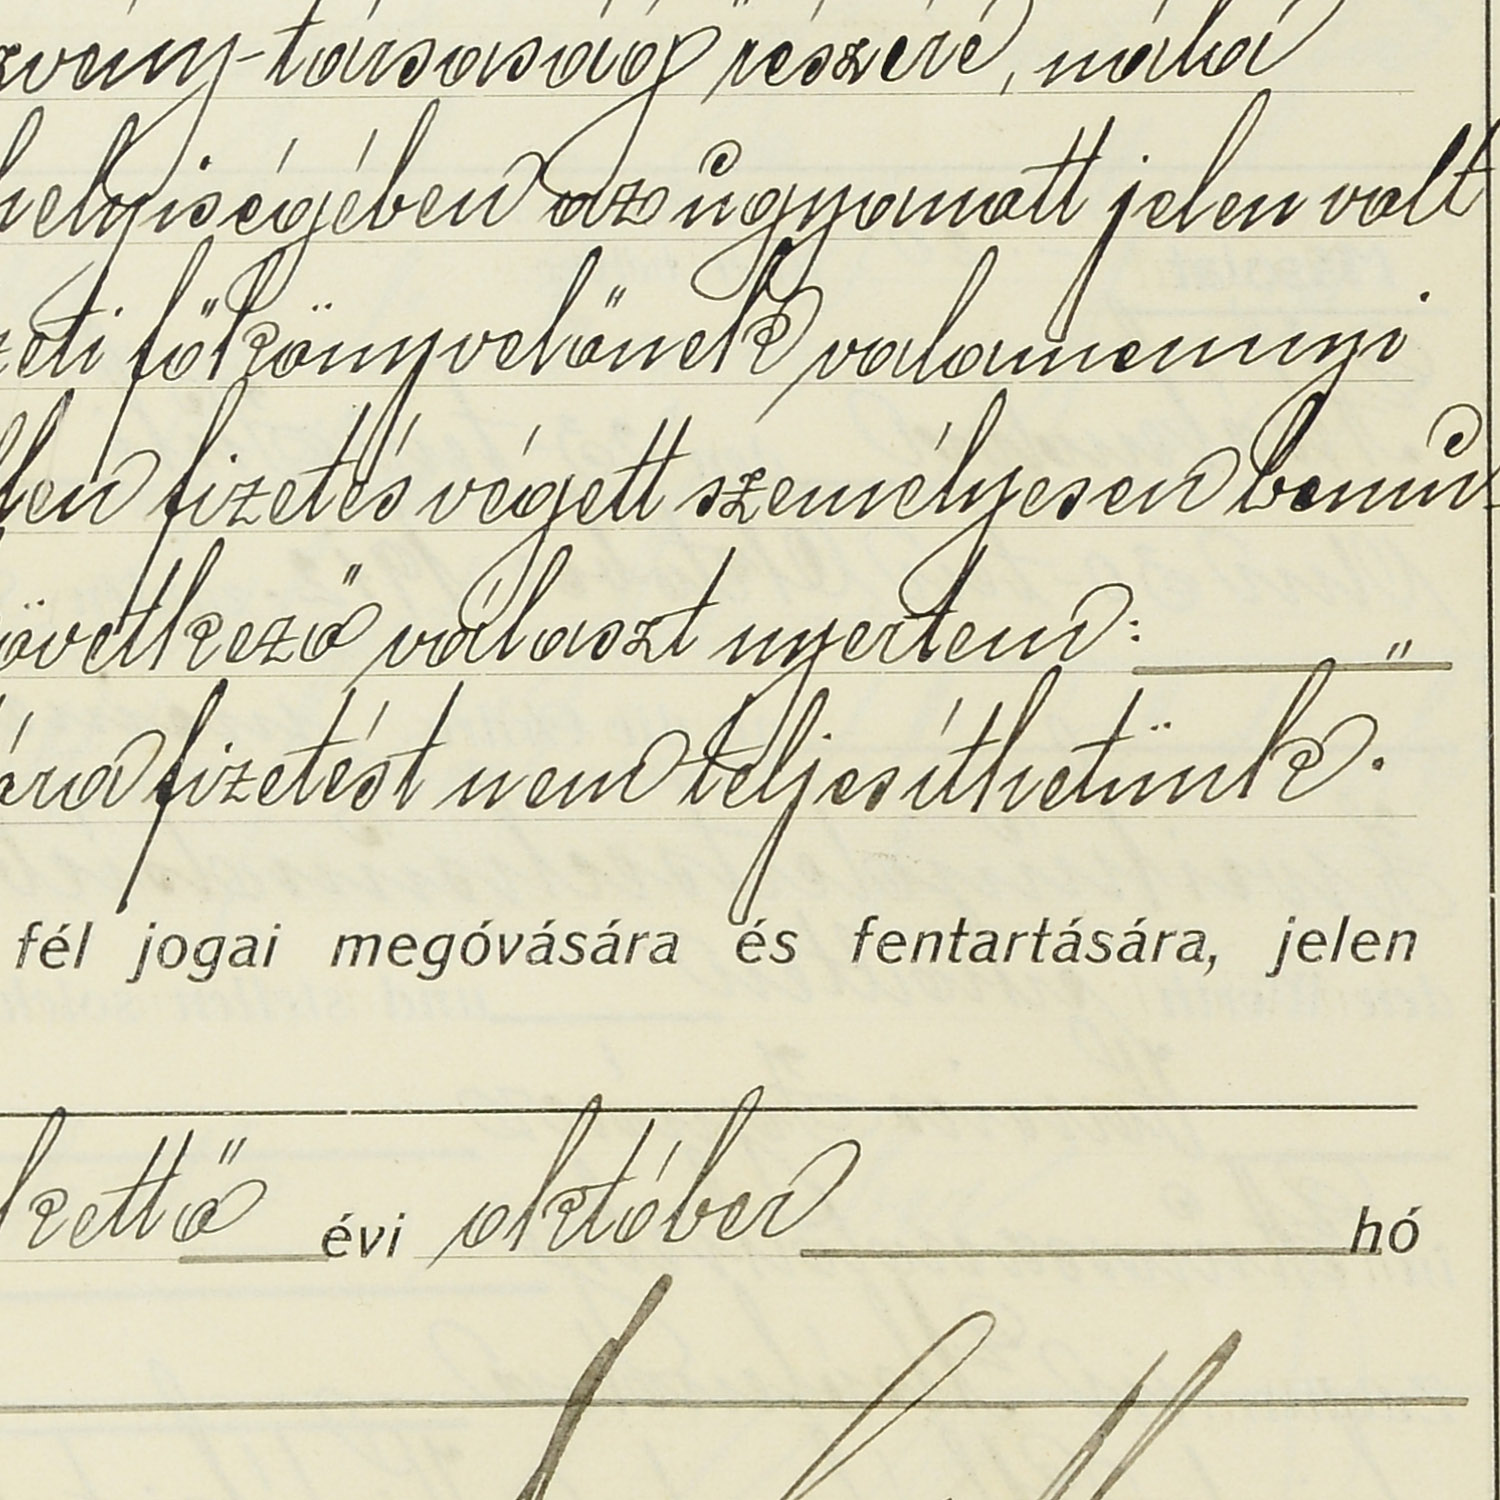 zvény-társaság részére, nála
helyiségében az ugyanott jelen volt
zeti főkönyvelőnek valamennyi
llen fizetés végett személyesen bemu-
övetkező választ nyertem: "
ára fizetést nem teljesíthetünk.
fél jogai megóvására és fentartására, jelen
kettő évi október hó